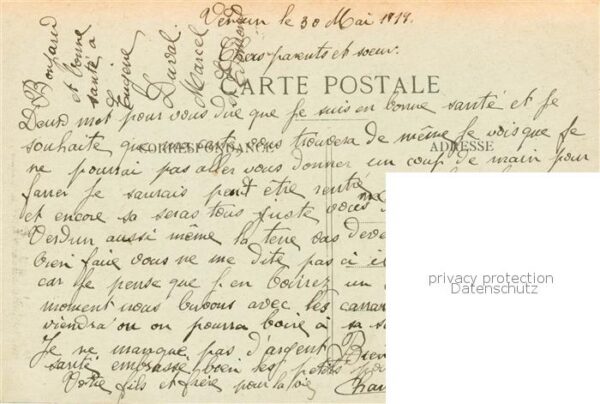 Verdun le 30 Mai 1919.
Chers parents et soeur.
Bonjour
et bonne
santé à
Eugène
Duval
Marcel
CARTE POSTALE
Deux mot pour vous dire que je suis en bonne santé et je
souhaite que ma carte vous trouvera de même je vois que je
CORRESPONDANCE
ADRESSE
ne pourrai pas aller vous donner un coup de main pour
faner je saurais peut être rentré
et encore sa seras tous juste
Verdun aussi même la terre vas
bien faire vous ne me dite pas ci
car je pense que j'en boirez un
moment nous buvons avec les
viendra ou on pourra boire à sa
Je ne manque pas d'argent
santé embrassé bien les petits
Votre fils et frère pour la vie
privacy protection
Datenschutz